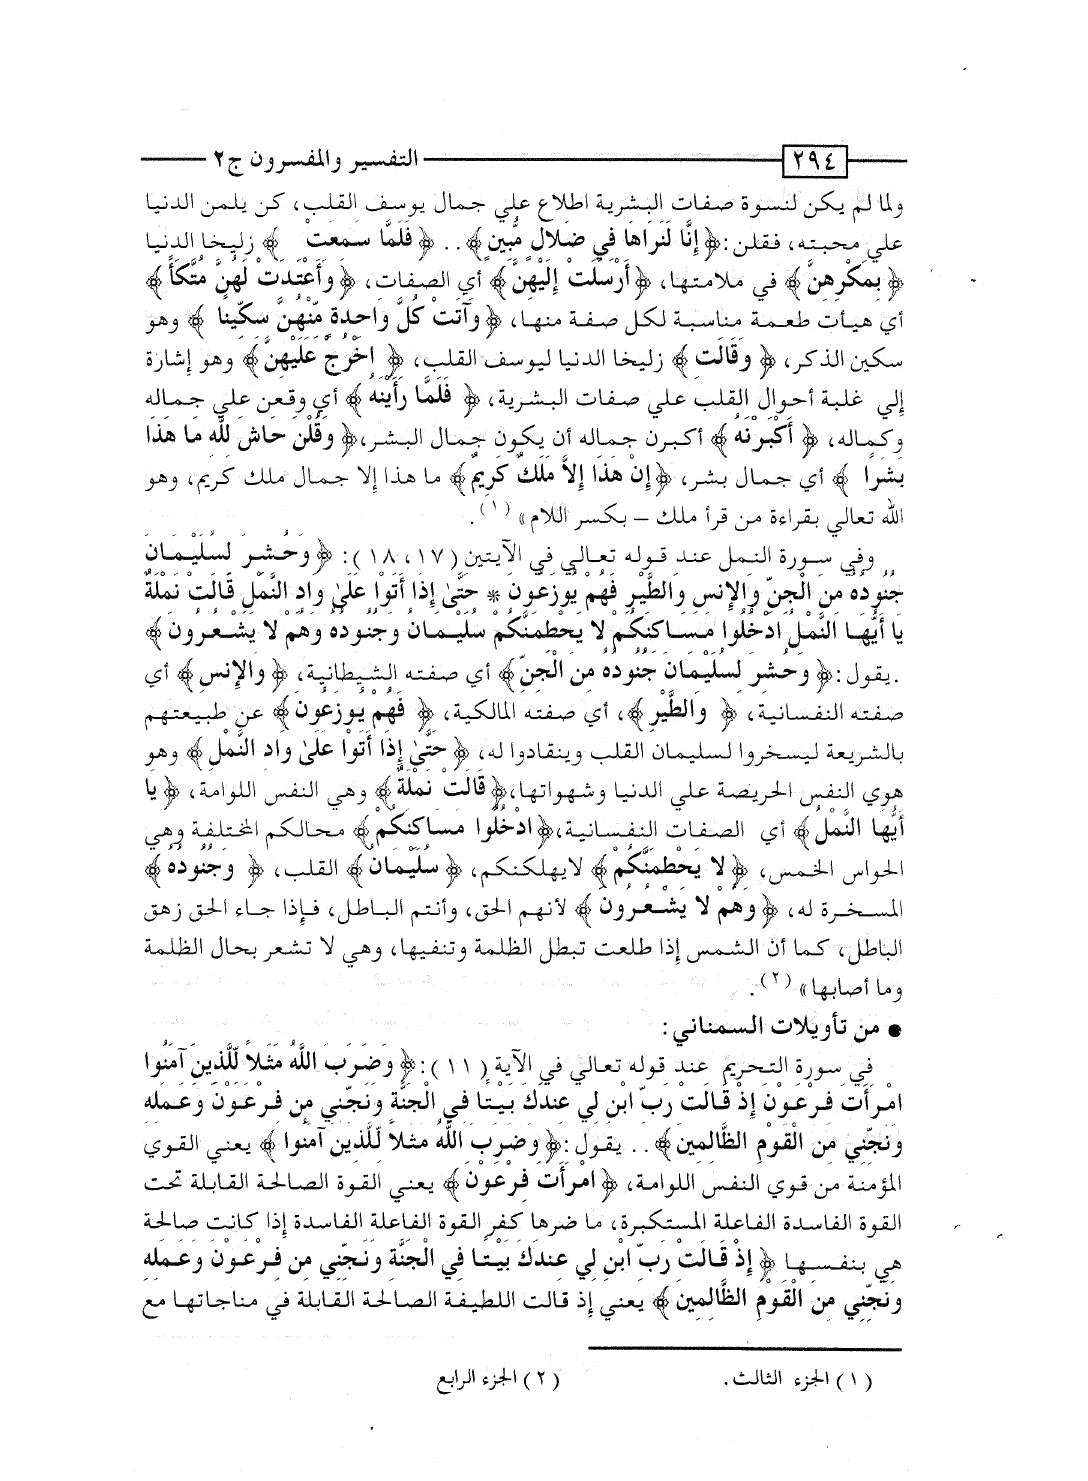 ٢٩٤ التفسير والمفسرون ج٢
ولما لم يكن لنسوة صفات البشرية اطلاع علي جمال يوسف القلب، كن يلمن الدنيا
علي محبته، فقلن: ﴿ إِنَّا لَنَرَاهَا فِي ضَلالٍ مُّبِينٍ ﴾ .. ﴿ فَلَمَّا سَمِعَتْ ﴾ زليخا الدنيا
﴿ بِمَكْرِهِنَّ ﴾ في ملامتها، ﴿ أَرْسَلَتْ إِلَيْهِنَّ ﴾ أي الصفات، ﴿ وَأَعْتَدَتْ لَهُنَّ مُتَّكَأً ﴾
أي هيأت طعمة مناسبة لكل صفة منها، ﴿ وَآتَتْ كُلَّ وَاحِدَةٍ مِّنْهُنَّ سِكِّينًا ﴾ وهو
سكين الذكر، ﴿ وَقَالَتِ ﴾ زليخا الدنيا ليوسف القلب، ﴿ اخْرُجْ عَلَيْهِنَّ ﴾ وهو إشارة
إلي غلبة أحوال القلب علي صفات البشرية، ﴿ فَلَمَّا رَأَيْنَهُ ﴾ أي وقعن علي جماله
وكماله، ﴿ أَكْبَرْنَهُ ﴾ أكبرن جماله أن يكون جمال البشر، ﴿ وَقُلْنَ حَاشَ لِلَّهِ مَا هَذَا
بَشَرًا ﴾ أي جمال بشر، ﴿ إِنْ هَذَا إِلاَّ مَلَكٌ كَرِيمٌ ﴾ ما هذا إلا جمال ملك كريم، وهو
الله تعالي بقراءة من قرأ ملك – بكسر اللام» (١).
وفي سورة النمل عند قوله تعالي في الآيتين (١٧، ١٨): ﴿ وَحُشِرَ لِسُلَيْمَانَ
جُنُودُهُ مِنَ الْجِنِّ وَالإِنسِ وَالطَّيْرِ فَهُمْ يُوزَعُونَ * حَتَّىٰ إِذَا أَتَوْا عَلَىٰ وَادِ النَّمْلِ قَالَتْ نَمْلَةٌ
يَا أَيُّهَا النَّمْلُ ادْخُلُوا مَسَاكِنَكُمْ لا يَحْطِمَنَّكُمْ سُلَيْمَانُ وَجُنُودُهُ وَهُمْ لا يَشْعُرُونَ ﴾
.يقول: ﴿ وَحُشِرَ لِسُلَيْمَانَ جُنُودُهُ مِنَ الْجِنِّ ﴾ أي صفته الشيطانية، ﴿ وَالإِنسِ ﴾ أي
صفته النفسانية، ﴿ وَالطَّيْرِ ﴾، أي صفته المالكية، ﴿ فَهُمْ يُوزَعُونَ ﴾ عن طبيعتهم
بالشريعة ليسخروا لسليمان القلب وينقادوا له، ﴿ حَتَّىٰ إِذَا أَتَوْا عَلَىٰ وَادِ النَّمْلِ ﴾ وهو
هوي النفس الحريصة علي الدنيا وشهواتها، ﴿ قَالَتْ نَمْلَةٌ ﴾ وهي النفس اللوامة، ﴿ يَا
أَيُّهَا النَّمْلُ ﴾ أي الصفات النفسانية، ﴿ ادْخُلُوا مَسَاكِنَكُمْ ﴾ محالكم المختلفة وهي
الحواس الخمس، ﴿ لا يَحْطِمَنَّكُمْ ﴾ لايهلكنكم، ﴿ سُلَيْمَانُ ﴾ القلب، ﴿ وَجُنُودُهُ ﴾
المسخرة له، ﴿ وَهُمْ لا يَشْعُرُونَ ﴾ لأنهم الحق، وأنتم الباطل، فإذا جاء الحق زهق
الباطل، كما أن الشمس إذا طلعت تبطل الظلمة وتنفيها، وهي لا تشعر بحال الظلمة
وما أصابها» (٢).
● من تأويلات السمناني:
في سورة التحريم عند قوله تعالي في الآية (١١): ﴿ وَضَرَبَ اللَّهُ مَثَلاً لِّلَّذِينَ آمَنُوا
امْرَأَتَ فِرْعَوْنَ إِذْ قَالَتْ رَبِّ ابْنِ لِي عِندَكَ بَيْتًا فِي الْجَنَّةِ وَنَجِّنِي مِن فِرْعَوْنَ وَعَمَلِهِ
وَنَجِّنِي مِنَ الْقَوْمِ الظَّالِمِينَ ﴾ .. يقول: ﴿ وَضَرَبَ اللَّهُ مَثَلاً لِّلَّذِينَ آمَنُوا ﴾ يعني القوي
المؤمنة من قوي النفس اللوامة، ﴿ امْرَأَتَ فِرْعَوْنَ ﴾ يعني القوة الصالحة القابلة تحت
القوة الفاسدة الفاعلة المستكبرة، ما ضرها كفر القوة الفاعلة الفاسدة إذا كانت صالحة
هي بنفسها ﴿ إِذْ قَالَتْ رَبِّ ابْنِ لِي عِندَكَ بَيْتًا فِي الْجَنَّةِ وَنَجِّنِي مِن فِرْعَوْنَ وَعَمَلِهِ
وَنَجِّنِي مِنَ الْقَوْمِ الظَّالِمِينَ ﴾ يعني إذ قالت اللطيفة الصالحة القابلة في مناجاتها مع
(١) الجزء الثالث. (٢) الجزء الرابع